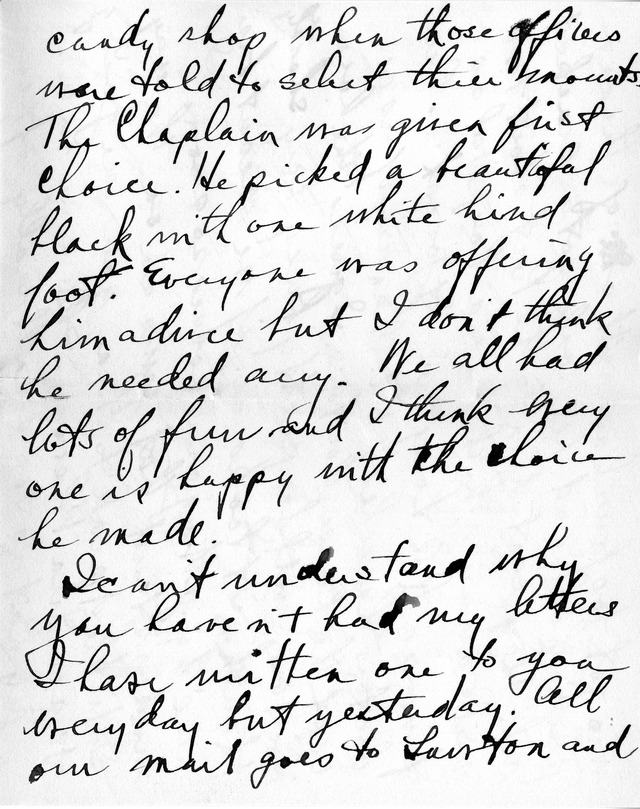 candy shop when those officers
were told to select their mounts.
The Chaplain was given first
choice. He picked a beautiful
black with one white hind
foot. Everyone was offering
him advice but I don't think
he needed any. We all had
lots of fun and I think every
one is happy with the choice
he made.
I can't understand why
you haven't had my letters
I have written one to you
everyday but yesterday. All
our mail goes to Lawton and